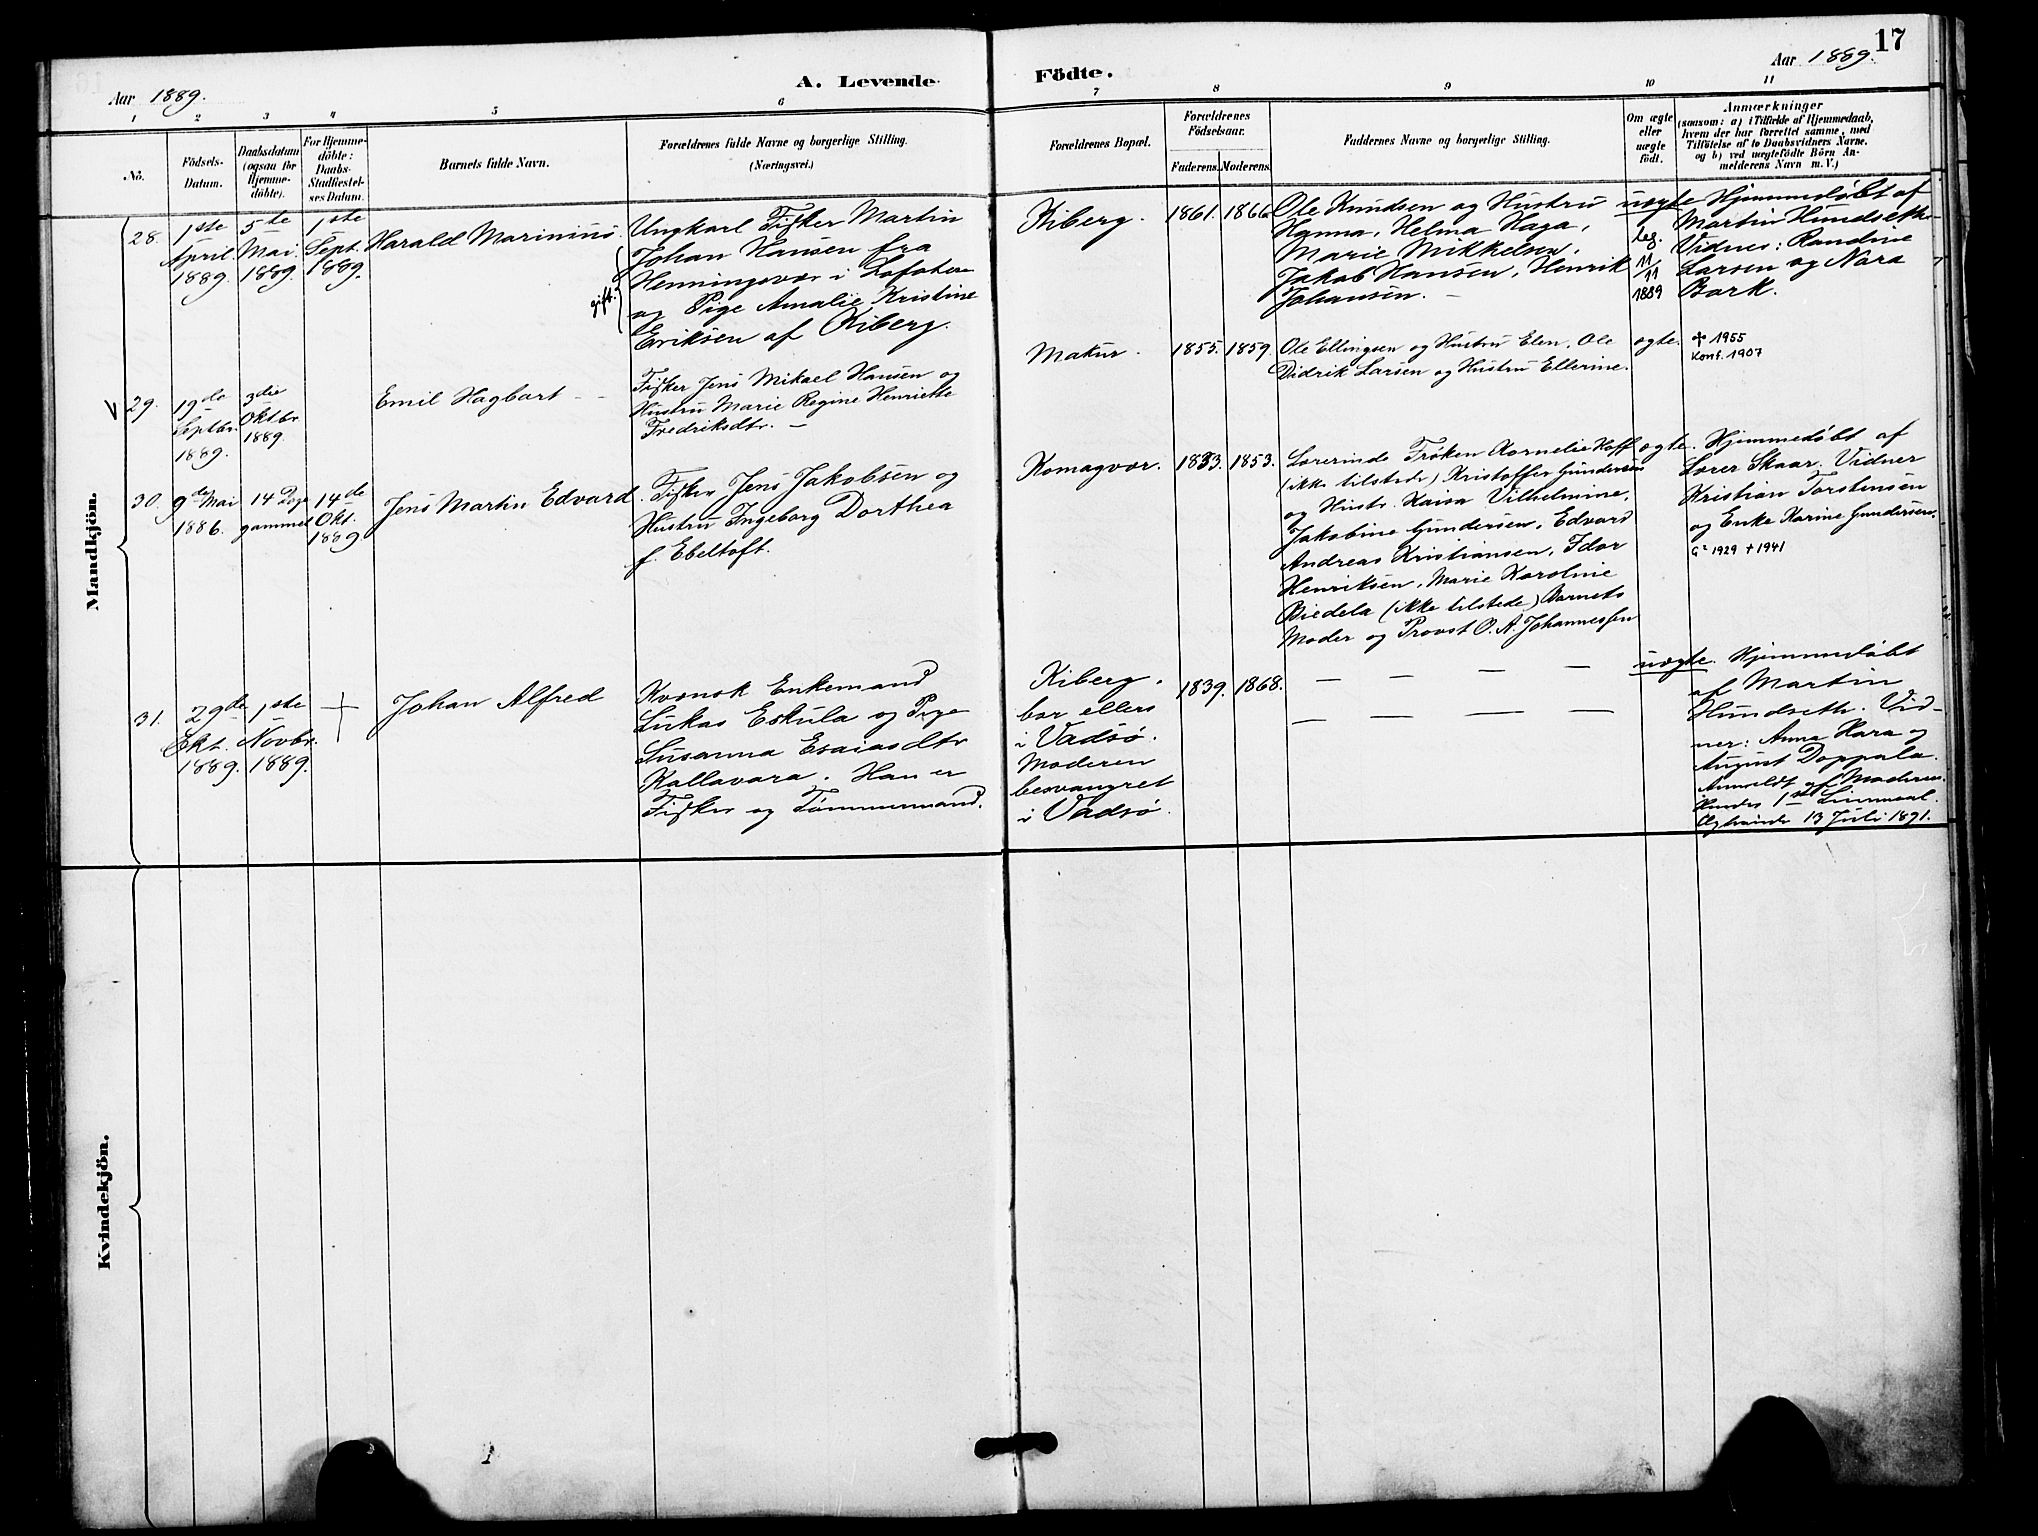 17
Aar 1889.
A. Levende
Födte.
Aar 1889.
1 2 3 4 5 6 7 8 9 10 11
No.
Födsels-
Datum.
Daabsdatum
(ogsaa for
Hjemme-
döbte).
For Hjemme-
döbte:
Daabs-
Stadfæstel-
ses Datum.
Barnets fulde Navn.
Forældrenes fulde Navne og borgerlige Stilling.
(Næringsvei.)
Forældrenes Bopæl.
Forældrenes
Födselsaar.
Faderens. Moderens.
Faddernes Navne og borgerlige Stilling.
Om ægte
eller
uægte
födt.
Anmærkninger
(saasom: a) i Tilfælde af Hjemmedaab,
hvem der har forrettet samme, med
Tilföielse af to Daabsvidners Navne,
og b) ved uægtefödte Börn An-
melderens Navn m. V.)
Mandkjön.
28.
1ste
April
1889.
5te
Mai
1889.
1ste
Sept.
1889.
Harald Marinius.
Ungkarl Fisker Martin
Johan Hansen fra
Henningsvær i Lofoten
og Pige Amalie Kristine
Eriksen af Kiberg.
gift.
Kiberg.
1861. 1866.
Ole Knudsen og Hustru
Hanna, Helma Haga,
Marie Mikkelsen,
Jakob Hansen, Henrik
Johansen. —
uægte
leg.
11/11
1889
Hjemmedøbt af
Martin Hundseth.
Vidner: Randine
Larsen og Nora
Bork.
V 29.
19de
Septbr.
1889.
3die
Oktbr
1889.
Emil Hagbart
Fisker Jens Mikael Hansen og
Hustru Marie Regine Henriette
Fredriksdtr. —
Makur.
1855. 1859.
Ole Ellingsen og Hustru Elen, Ole
Didrik Larsen og Hustru Ellerine.
ægte.
✝ 1955
Konf. 1907
30.
9de Mai
1886.
14 Dage
gammel
14de
Okt.
1889
Jens Martin Edvard
Fisker Jens Jakobsen og
Hustru Ingeborg Dorthea
f. Ebeltoft.
Komagvær.
1833. 1853.
Lærerinde Frøken Kornelie Hoff
(ikke tilstede) Kristoffer Gundersen
og Hustr. Kaisa Vilhelmine,
Jakobine Gundersen, Edvard
Andreas Kristiansen, Idor
Henriksen, Marie Karoline
Biedela (ikke tilstede) Barnets
Moder og Provst O. A. Johannessen
ægte.
Hjemmedøbt af
Lærer Skaar. Vidner
Kristian Torstensen
og Enke Karine Gundersen.
G² 1929 + 1941
31.
29de
Okt.
1889.
1ste
Novbr.
1889.
Johan Alfred
Kvænsk Enkemand
Lukas Eskula og Pige
Susanna Esaiasdtr
Kallavara. Han er
Fisker og Tømmermand.
Kiberg,
bor ellers
i Vadsø.
Moderen
besvangret
i Vadsø.
1839. 1868.
— — — —
— — — —
uægte.
Hjemmedøbt
af Martin
Hundseth. Vid-
ner: Anna Kara og
August Doppala.
Anmeldt af Moderen.
Hendes 1ste Leiermaal.
13 Juli 1891.
Kvindekjön.